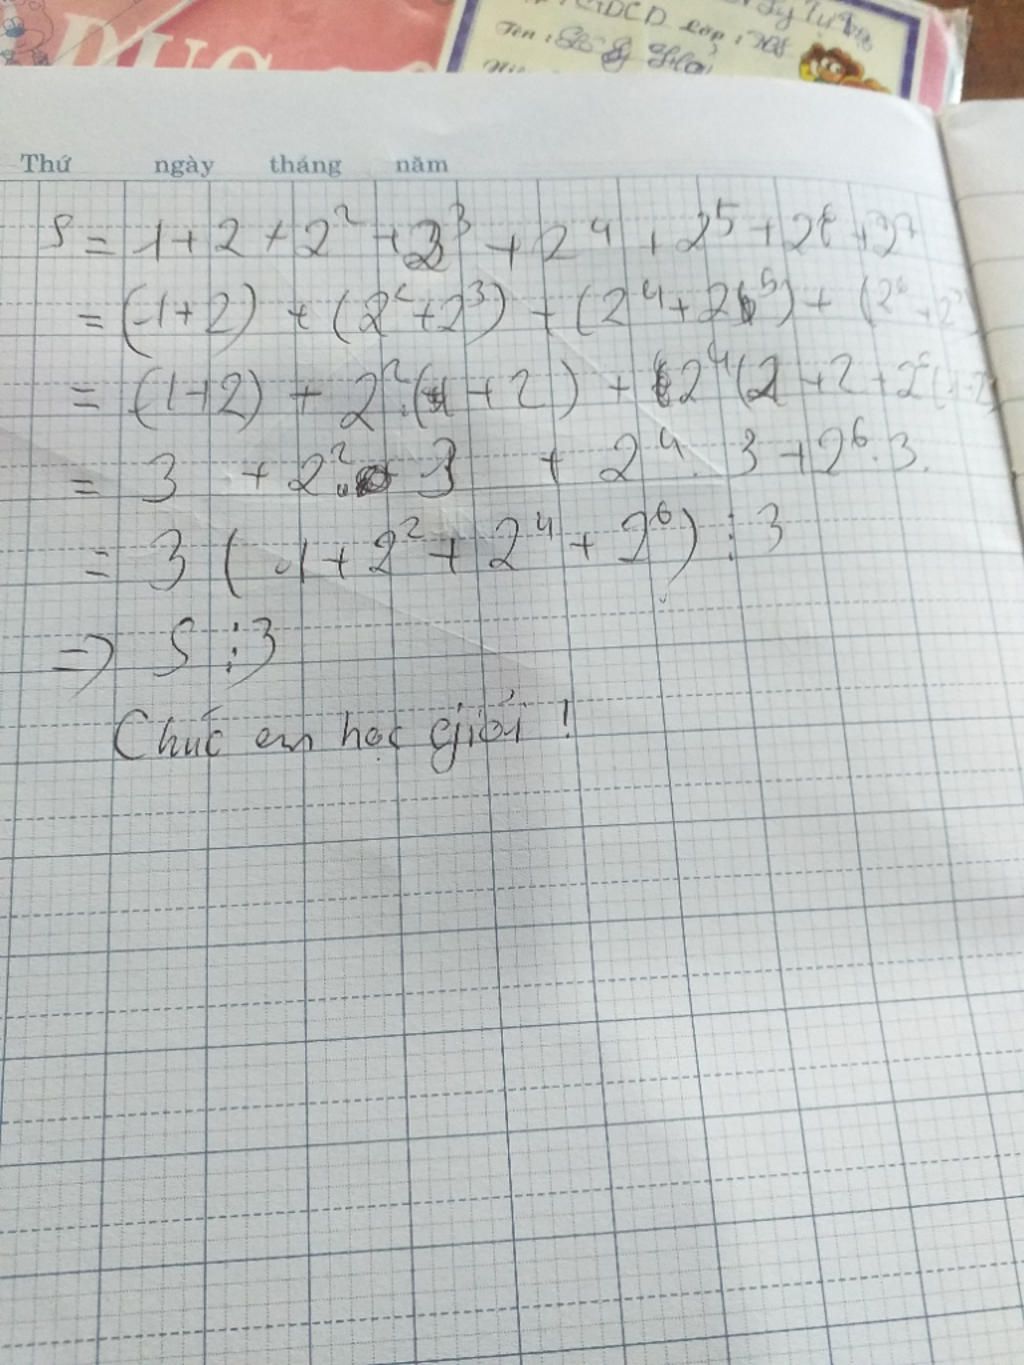 ĐỤC
GDCD Lớp:
Tên:
Thứ ngày tháng năm
S = 1 + 2 + 2² + 2³ + 2⁴ + 2⁵ + 2⁶ + 2⁷
= (1+2) + (2² + 2³) + (2⁴ + 2⁵) + (2⁶ + 2⁷)
= (1+2) + 2².(1+2) + 2⁴(1+2 + 2⁶(1+2)
= 3 + 2². 3 + 2⁴. 3 + 2⁶. 3.
= 3 (1 + 2² + 2⁴ + 2⁶) ⋮ 3
=> S ⋮ 3
Chúc em học giỏi !